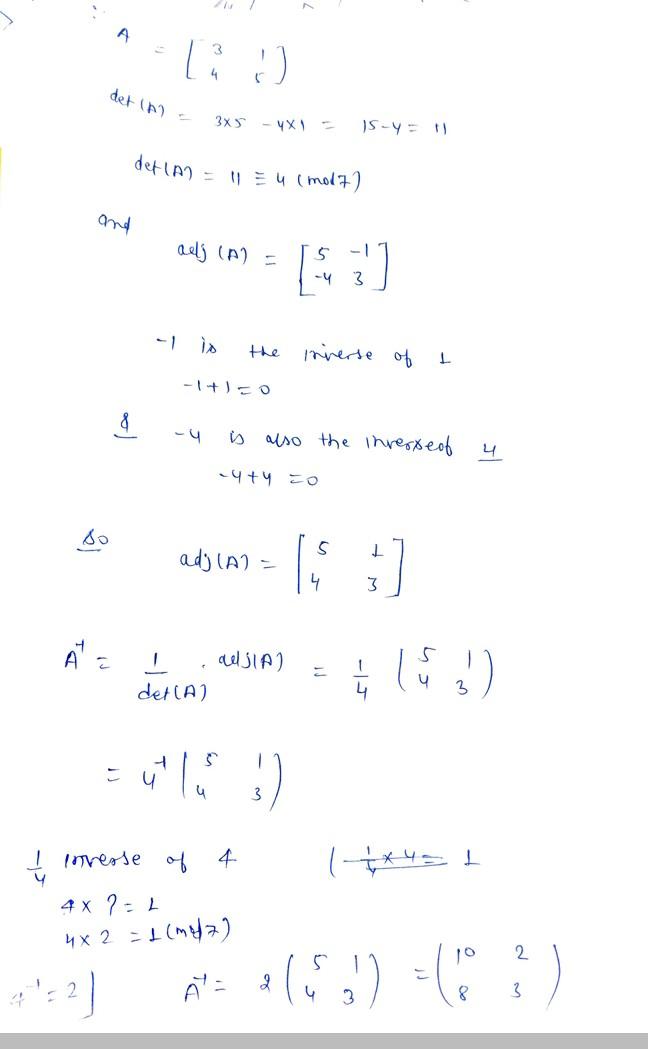 A = [ 3 1
4 5 )
det(A) = 3x5 - 4x1 = 15-4 = 11
det(A) = 11 ≡ 4 (mod 7)
and
adj (A) = [ 5 -1
-4 3 ]
-1 is the inverse of 1
-1+1=0
& -4 is also the inverse of 4
-4+4 =0
So
adj(A) = [ 5 1
4 3 ]
A⁻¹ = 1/det(A) . adj(A) = 1/4 ( 5 1
4 3 )
= 4⁻¹ ( 5 1
4 3 )
1/4 inverse of 4 ( 1/4 x 4 = 1
4 x ? = 1
4 x 2 = 1 (mod 7)
4⁻¹ = 2 ] A⁻¹ = 2 ( 5 1
4 3 ) = ( 10 2
8 3 )